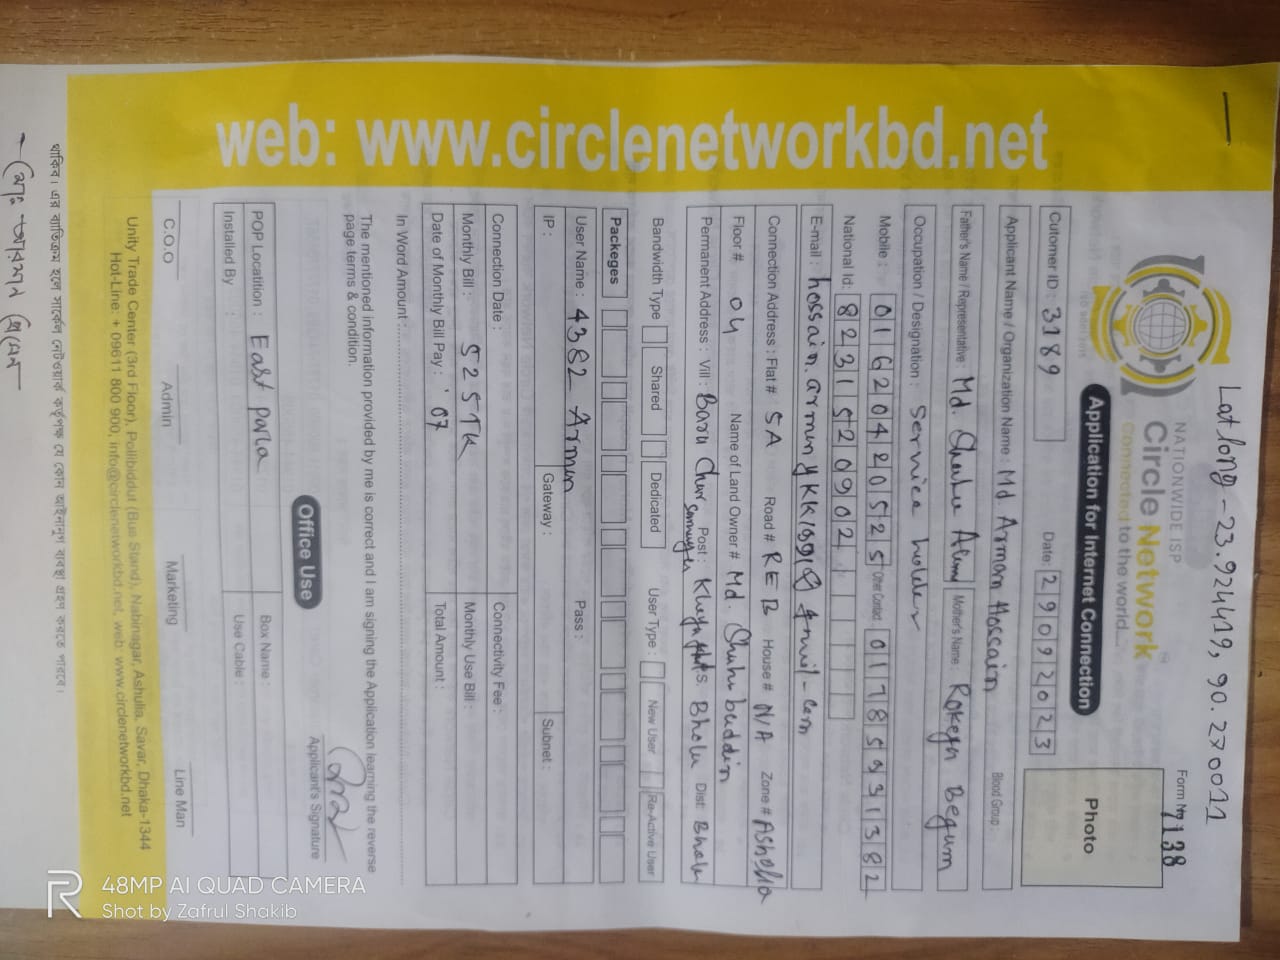 Lat long - 23.924419, 90.270011
NATIONWIDE ISP
Circle Network
Connected to the world...
Form No 7138
Application for Internet Connection
Photo
Cutomer ID : 3189 Date: 29092023
Applicant Name / Organization Name : Md. Arman Hossain Blood Group :
Father's Name / Representative : Md. Mother's Name : Rokeya Begum
Occupation / Designation : Service holder
Mobile : 01620420525 Other Contact : 01785931382
National Id: 8231520902
E-mail :
Connection Address : Flat # 5A Road # REB House # N/A Zone # Ashulia
Floor # 04 Name of Land Owner # Md. Shahabuddin
Permanent Address : Vill : Baru Char Post : P.S: Bhola Dist: Bhola
Bandwidth Type Shared Dedicated User Type : New User Re-Active User
Packeges
User Name : 4382 Arman Pass :
IP : Gateway : Subnet :
Connection Date : Connectivity Fee :
Monthly Bill : 525TK Monthly Use Bill :
Date of Monthly Bill Pay : 07 Total Amount :
In Word Amount :
The mentioned information provided by me is correct and I am signing the Application learning the reverse
page terms & condition.
Applicant's Signature
Office Use
POP Locatition : East para Box Name :
Installed By : Use Cable :
C.O.O Admin Marketing Line Man
Unity Trade Center (3rd Floor), Pollibiddut (Bus Stand), Nabinagar, Ashulia, Savar, Dhaka-1344
Hot-Line: + 09611 800 900, info@circlenetworkbd.net, web: www.circlenetworkbd.net
web: www.circlenetworkbd.net
থাকিব। এর ব্যতিক্রম হলে সার্কেল নেটওয়ার্ক কর্তৃপক্ষ যে কোন আইনানুগ ব্যবস্থা গ্রহণ করতে পারবে।
48MP AI QUAD CAMERA
Shot by Zafrul Shakib